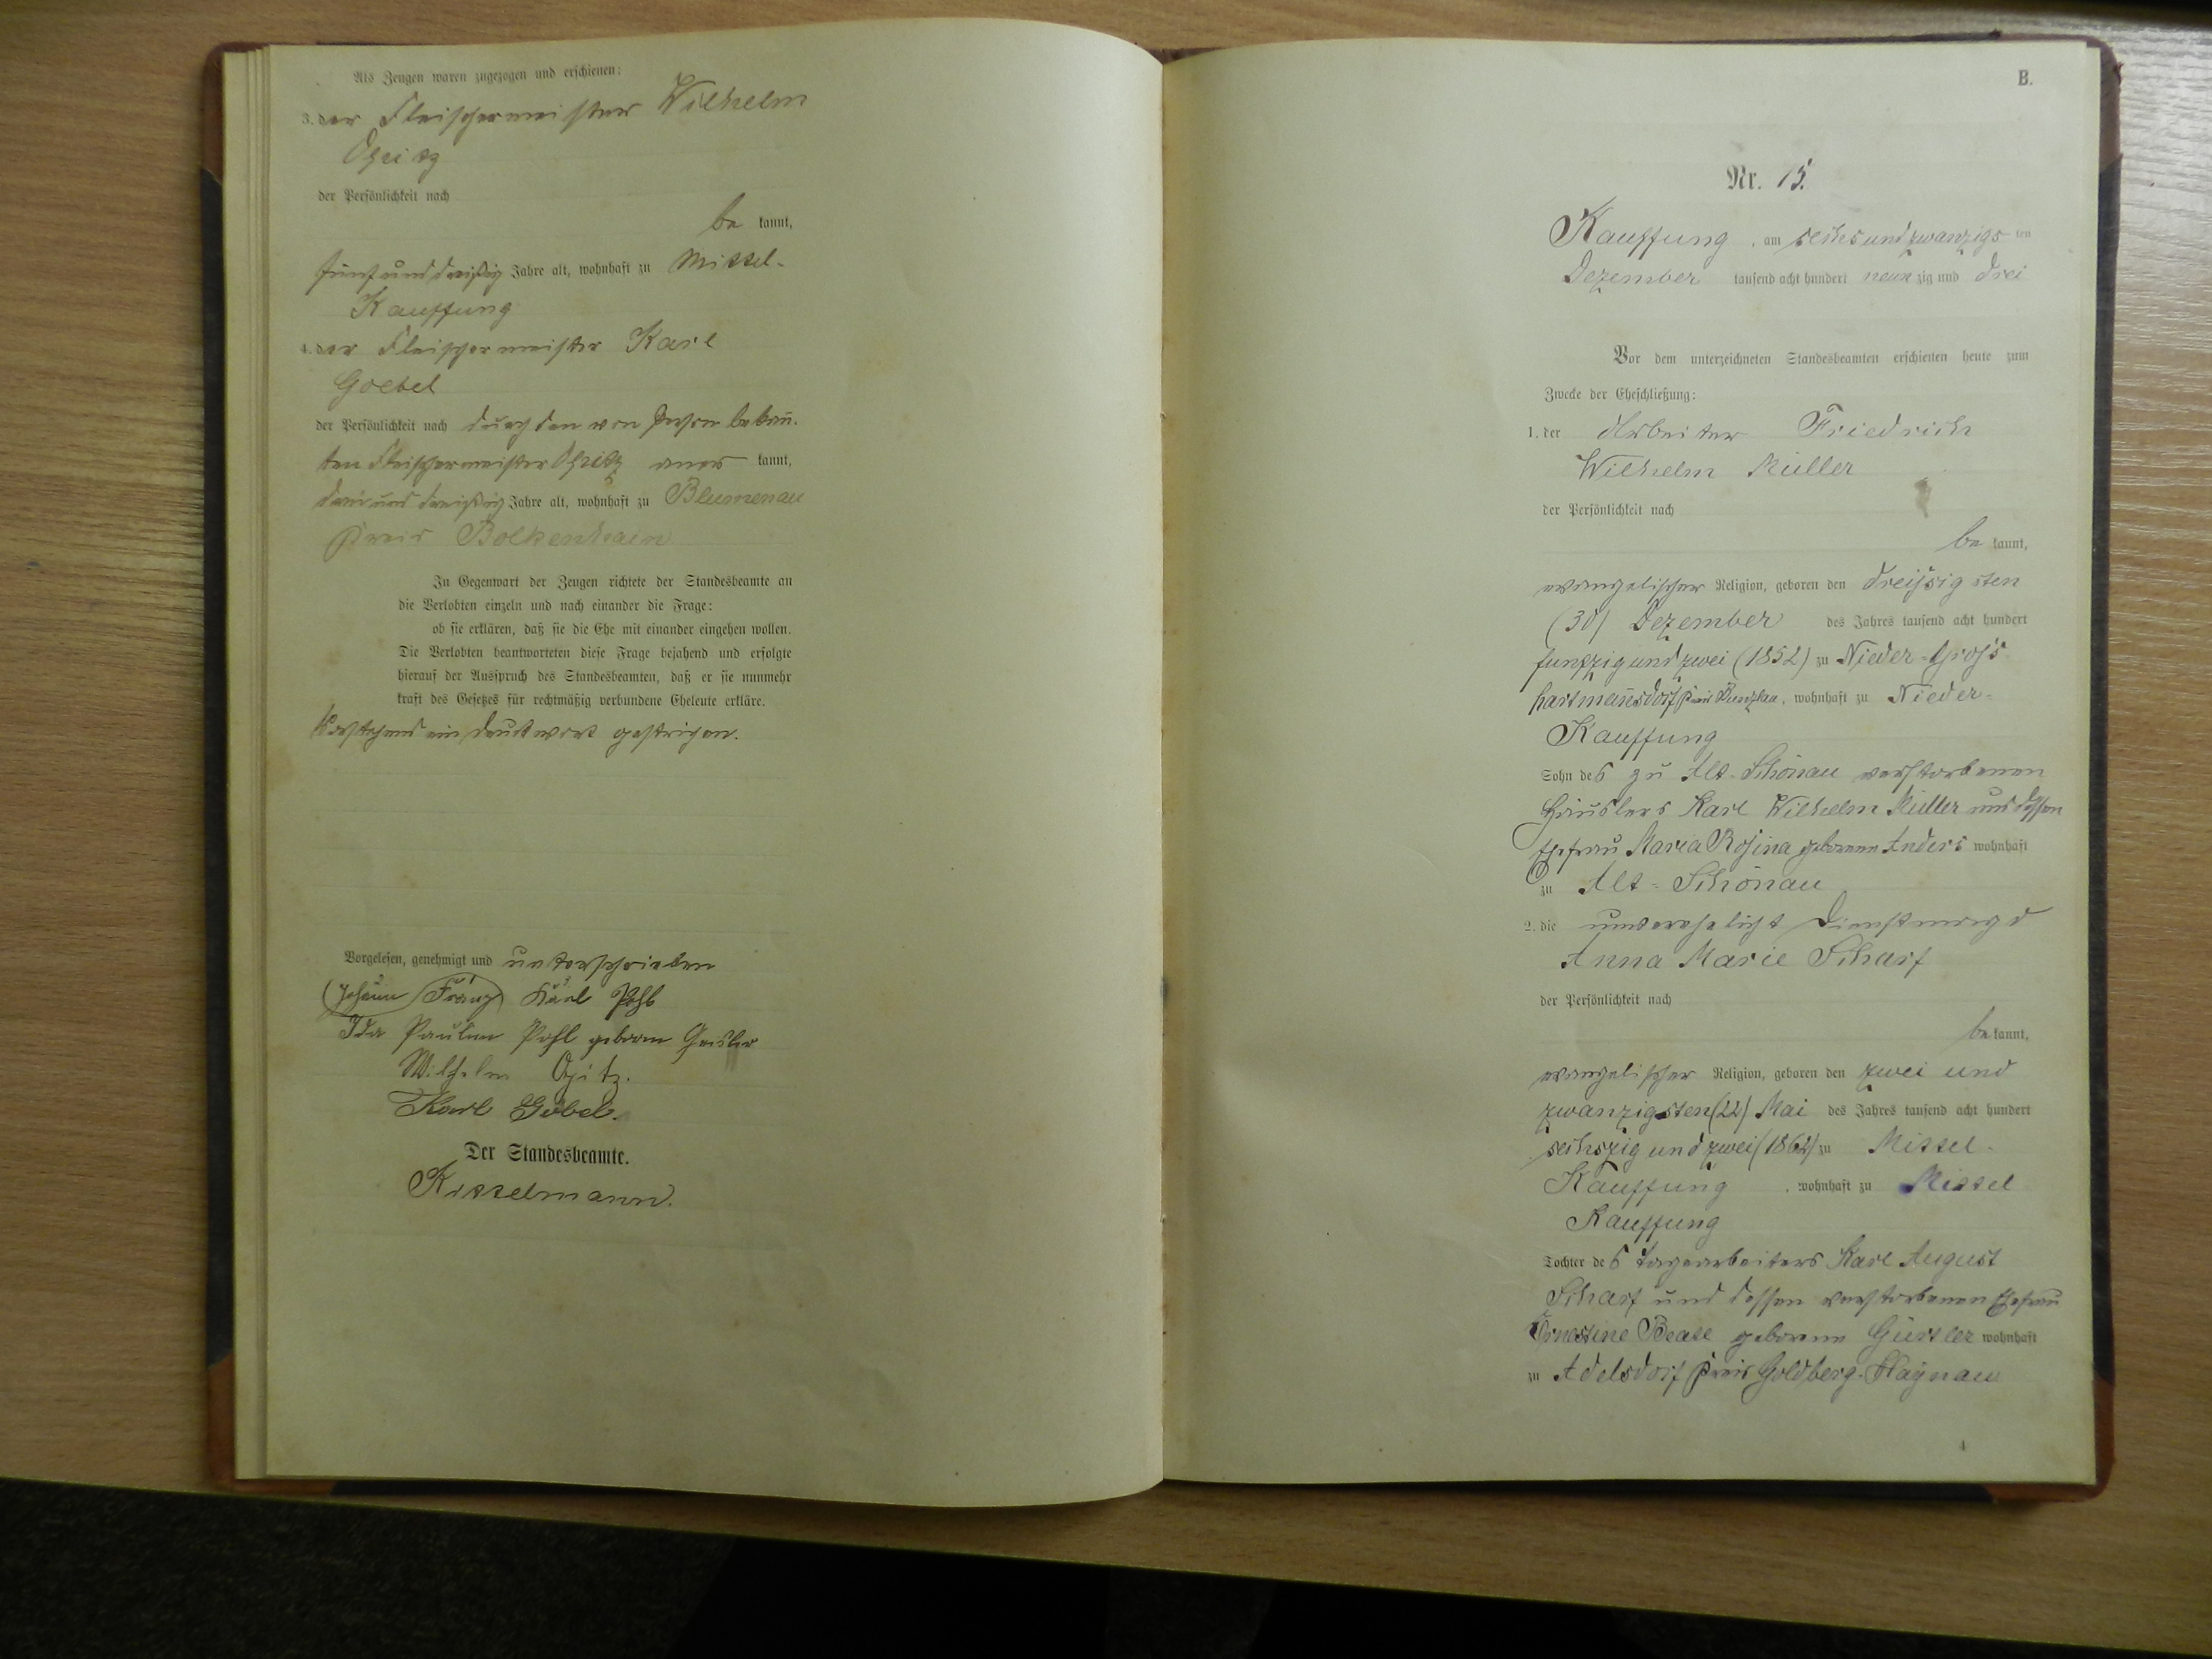 Als Zeugen waren zugezogen und erschienen:
3. der Fleischermeister Wilhelm
Opitz
der Persönlichkeit nach
be kannt,
fünfunddreißig Jahre alt, wohnhaft zu Mittel-
Kauffung
4. der Fleischermeister Karl
Goebel
der Persönlichkeit nach durch den von Person bekan̄-
ten Fleischermeister Opitz aner kannt,
dreiunddreißig Jahre alt, wohnhaft zu Blumenau
Kreis Bolkenhain
In Gegenwart der Zeugen richtete der Standesbeamte an
die Verlobten einzeln und nach einander die Frage:
ob sie erklären, daß sie die Ehe mit einander eingehen wollen.
Die Verlobten beantworteten diese Frage bejahend und erfolgte
hierauf der Ausspruch des Standesbeamten, daß er sie nunmehr
kraft des Gesetzes für rechtmäßig verbundene Eheleute erkläre.
Vorstehend ein Druckwort gestrichen.
Vorgelesen, genehmigt und unterschrieben
(Johann Franz) Karl Pohl
Ida Pauline Pohl geboren Geisler
Wilhelm Opitz.
Karl Göbel.
Der Standesbeamte.
Kittelmann.
B.
Nr. 15.
Kauffung, am sechsundzwanzigs ten
Dezember tausend acht hundert neun zig und drei
Vor dem unterzeichneten Standesbeamten erschienen heute zum
Zwecke der Eheschließung:
1. der Arbeiter Friedrich
Wilhelm Müller
der Persönlichkeit nach
be kannt,
evangelischer Religion, geboren den dreißigsten
(30) Dezember des Jahres tausend acht hundert
funfzig und zwei (1852) zu Nieder-Groß-
hartmannsdorf Kreis Bunzlau, wohnhaft zu Nieder-
Kauffung
Sohn des zu Alt-Schönau verstorbenen
Häuslers Karl Wilhelm Müller und dessen
Ehefrau Maria Rosina geborene Anders wohnhaft
zu Alt-Schönau
2. die unverehelicht Dienstmagd
Anna Marie Scharf
der Persönlichkeit nach
be kannt,
evangelischer Religion, geboren den zwei und
zwanzigsten (22) Mai des Jahres tausend acht hundert
sechszig und zwei (1862) zu Mittel-
Kauffung, wohnhaft zu Mittel
Kauffung
Tochter des Tagearbeiters Karl August
Scharf und dessen verstorbenen Ehefrau
Ernestine Beate geborene Gürtler wohnhaft
zu Adelsdorf Kreis Goldberg-Haynau
4